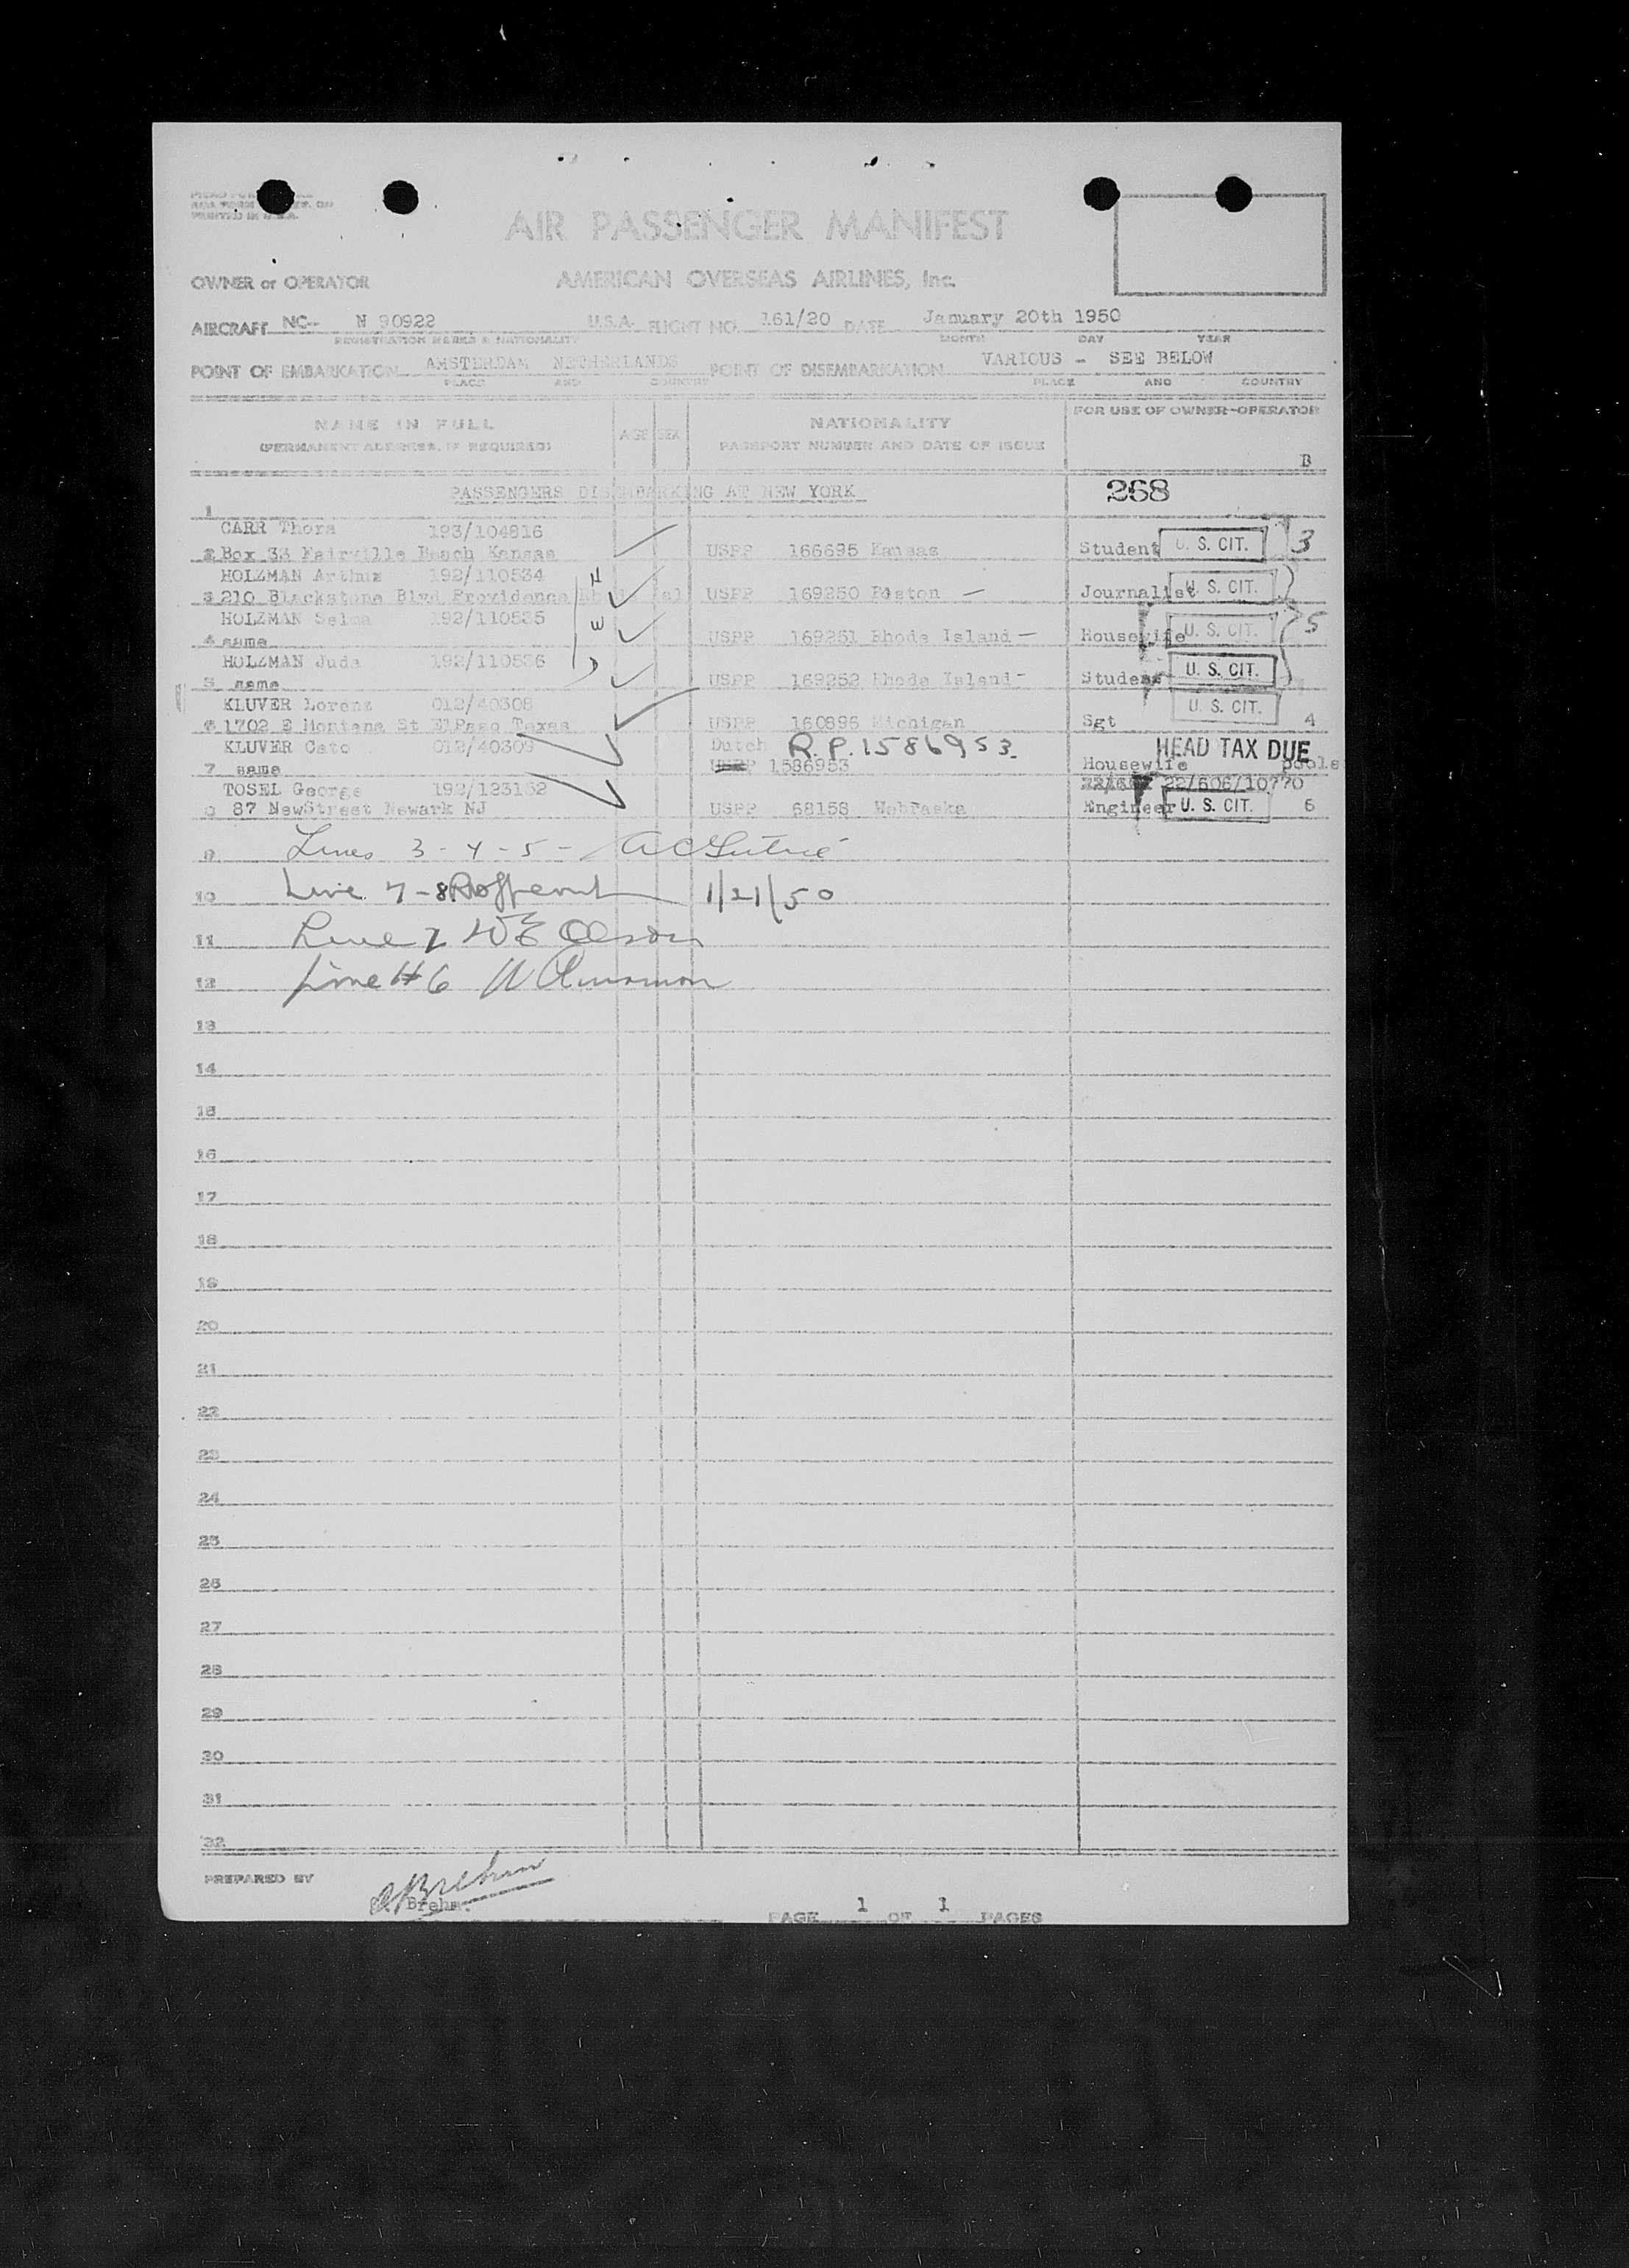 PRINTED IN U.S.A.
AIR PASSENGER MANIFEST
OWNER or OPERATOR AMERICAN OVERSEAS AIRLINES, Inc.
AIRCRAFT NC-- N 90922 U.S.A. FLIGHT NO. 161/20 DATE January 20th 1950
REGISTRATION MARKS & NATIONALITY MONTH DAY YEAR
POINT OF EMBARKATION AMSTERDAM NETHERLANDS POINT OF DISEMBARKATION VARIOUS - SEE BELOW
PLACE AND COUNTRY PLACE AND COUNTRY
NAME IN FULL AGE SEX NATIONALITY FOR USE OF OWNER-OPERATOR
(PERMANENT ADDRESS, IF REQUIRED) PASSPORT NUMBER AND DATE OF ISSUE
B
PASSENGERS DISEMBARKING AT NEW YORK 268
1
CARR Thora 193/104816
2 Box 33 Fairville Beach Kansas USPP 166695 Kansas Student U. S. CIT. 3
HOLZMAN Arthur 192/110534
3 210 Blackstone Blvd Providence USPP 169250 Boston - Journalist U. S. CIT.
HOLZMAN Selma 192/110535
4 same USPP 169251 Rhode Island - Housewife U. S. CIT. 5
HOLZMAN Juda 192/110536
5 same USPP 169252 Rhode Island - Student U. S. CIT.
KLUVER Lorenz 012/40308 U. S. CIT.
6 1702 E Montana St ElPaso Texas USPP 160896 Michigan Sgt 4
KLUVER Cato 012/40309 Dutch R.P. 1586953. HEAD TAX DUE
7 same USPP 1586953 Housewife
TOSEL George 192/123162 22/606/10770
8 87 NewStreet Newark NJ USPP 68158 Nebraska Engineer U. S. CIT. 6
9 Lines 3-4-5-
10 Line 7-8 1/21/50
11 Line 2 WE Olson
12 Line #6
13
14
15
16
17
18
19
20
21
22
23
24
25
26
27
28
29
30
31
32
PREPARED BY Brehm
Brehm.
PAGE 1 OF 1 PAGES